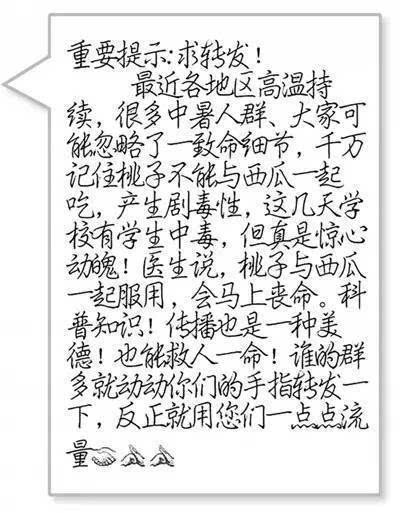 重要提示:求转发！
最近各地区高温持
续，很多中暑人群、大家可
能忽略了一致命细节，千万
记住桃子不能与西瓜一起
吃，产生剧毒性，这几天学
校有学生中毒，但真是惊心
动魄！医生说，桃子与西瓜
一起服用，会马上丧命。科
普知识！传播也是一种美
德！也能救人一命！谁的群
多就动动你们的手指转发一
下，反正就用您们一点点流
量